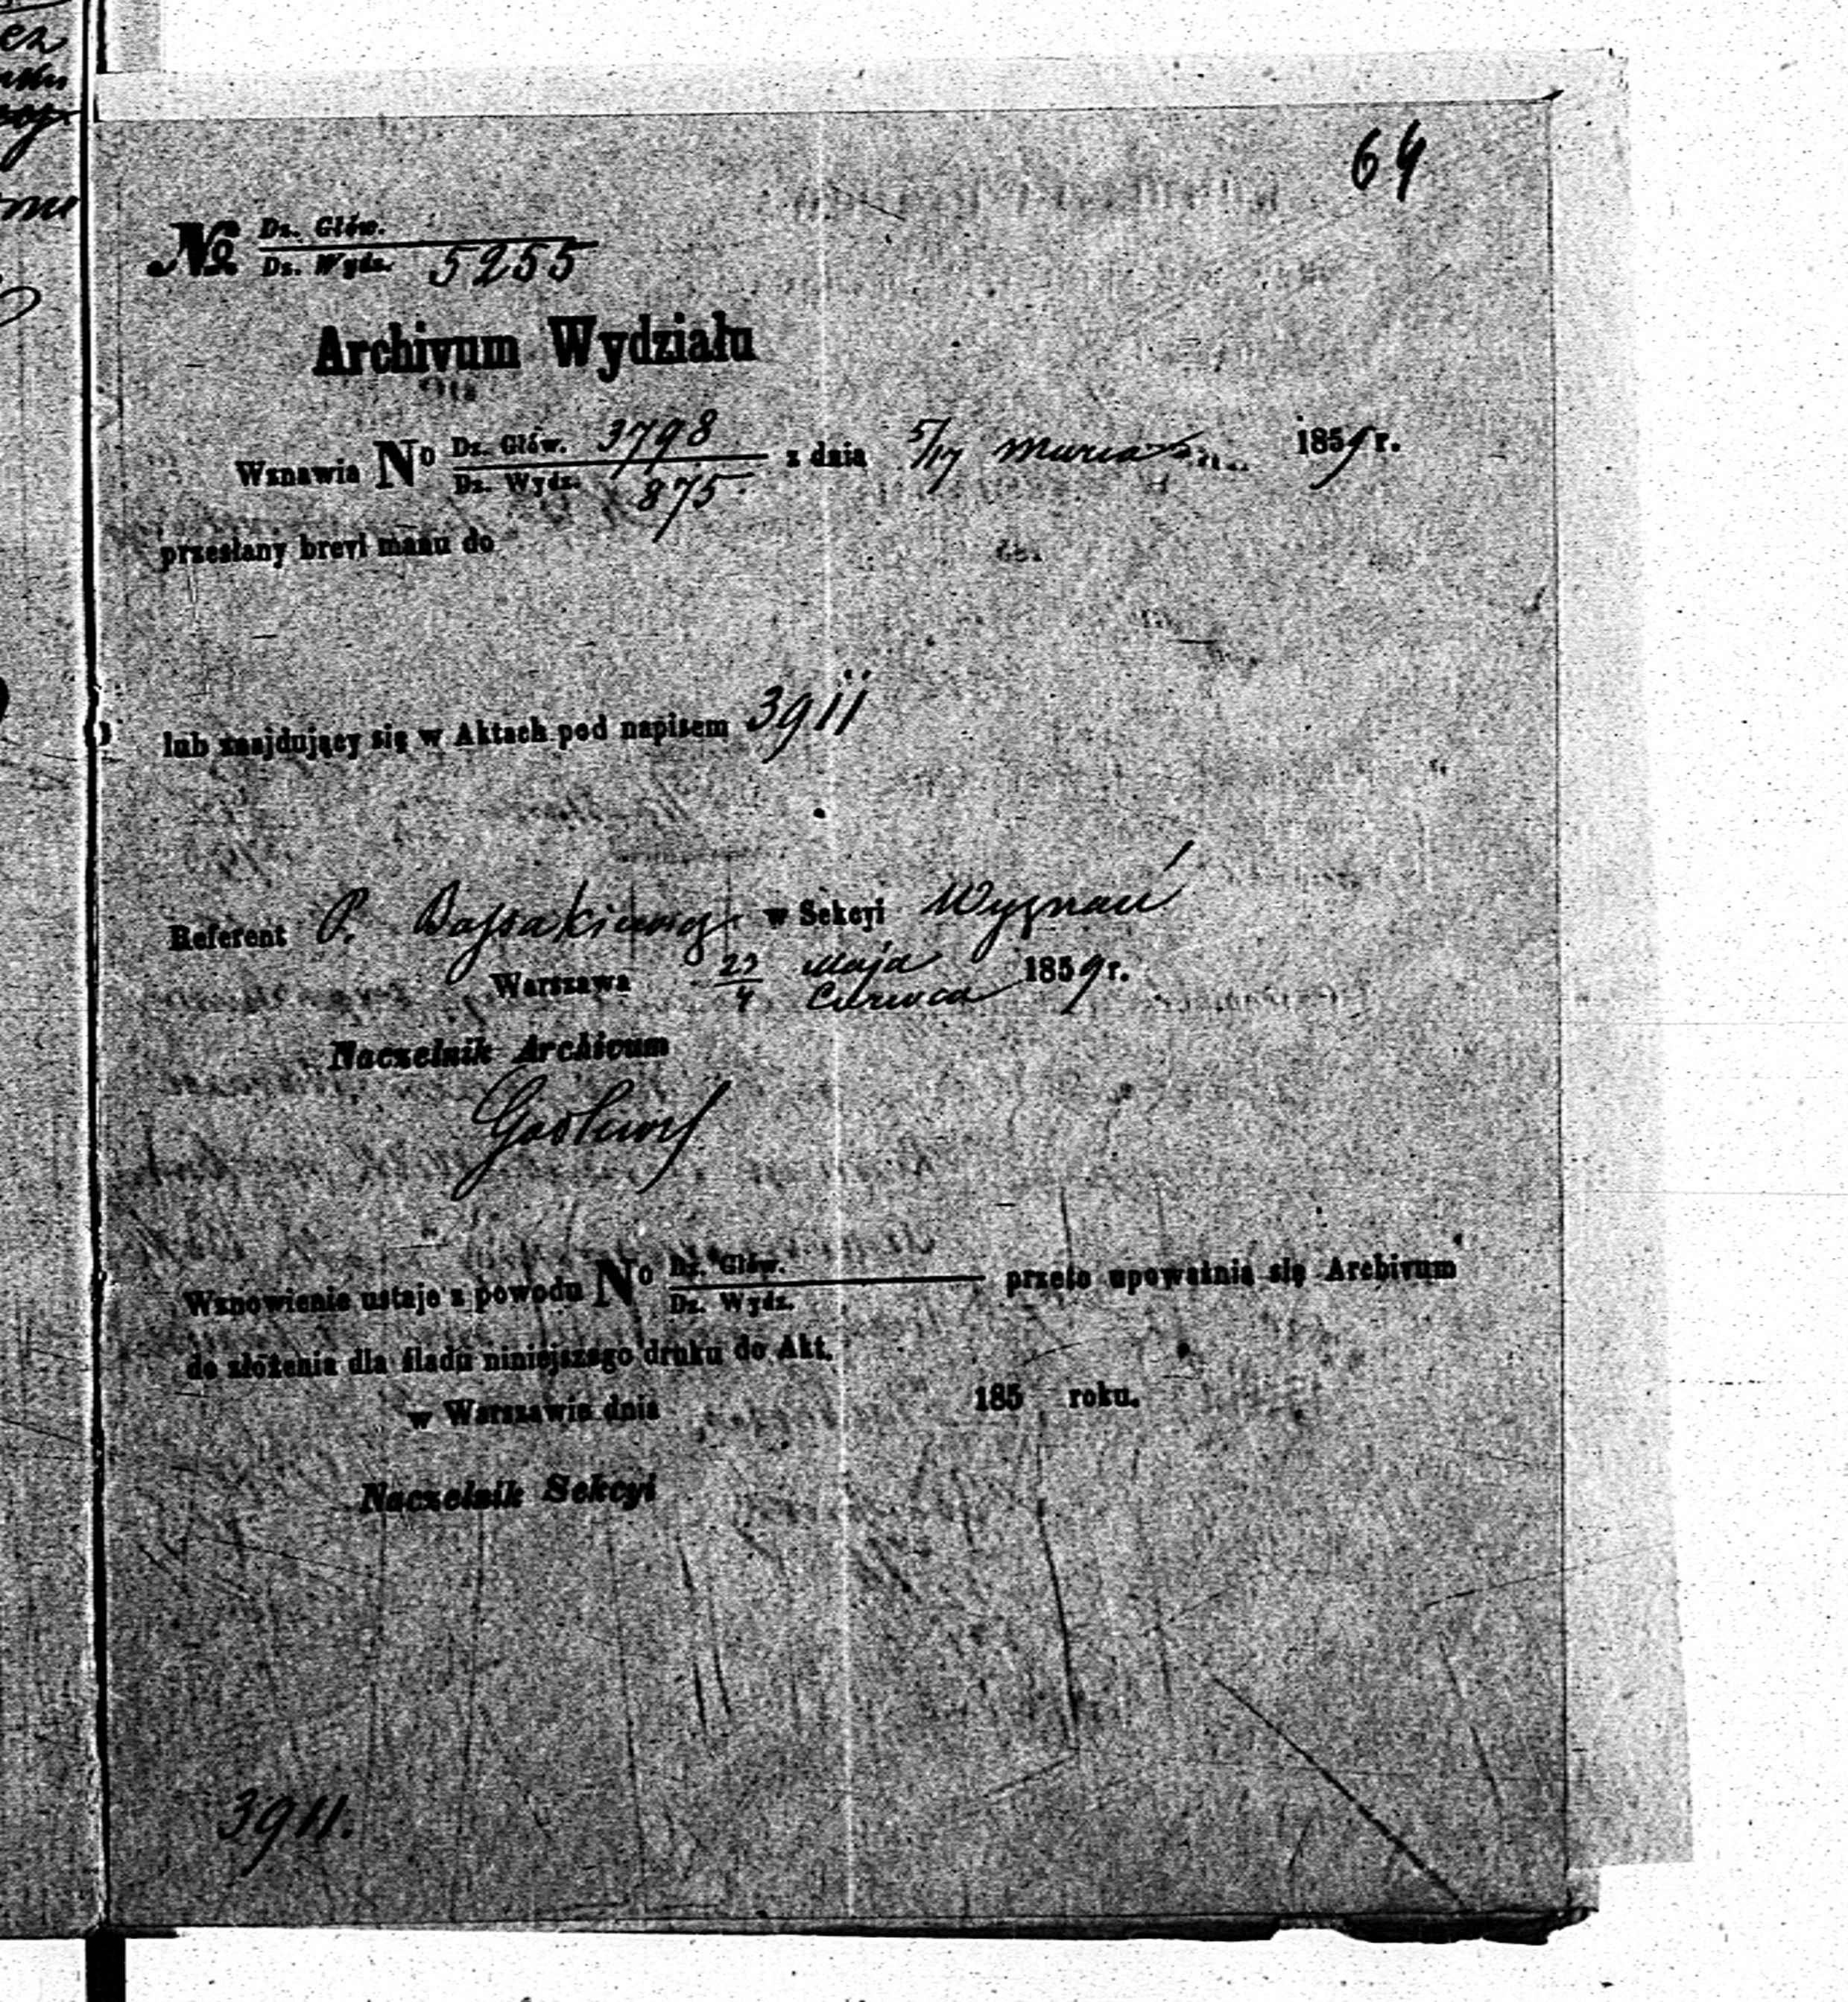 64
№ Dz. Głów.
Dz. Wydz. 5255
Archivum Wydziału
Wznawia No Dz. Głów. 3798 z dnia 5/17 Marca 1859 r.
Dz. Wydz. 875
przesłany brevi manu do
lub znajdujący się w Aktach pod napisem 3911
Referent P. w Sekcyi Wyznań
Warszawa 23 Maja 1859 r.
4 Czerwca
Naczelnik Archivum
Wznowienie ustaje z powodu No Dz. Głów. przeto upoważnia się Archivum
Dz. Wydz.
do złożenia dla śladu niniejszego druku do Akt.
w Warszawie dnia 185 roku.
Naczelnik Sekcyi
3911.